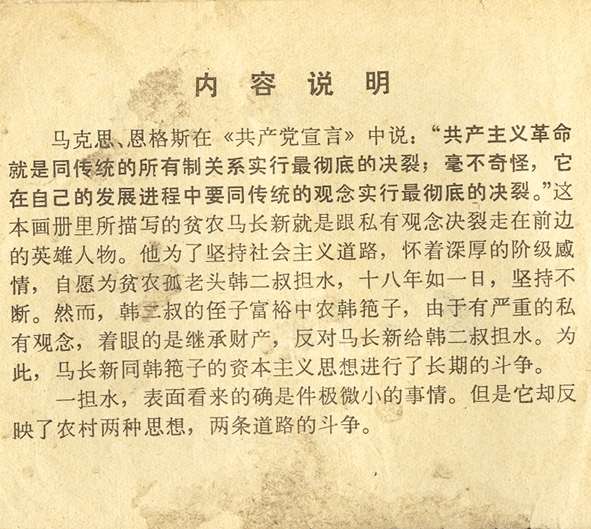 内容说明
马克思、恩格斯在《共产党宣言》中说：“共产主义革命
就是同传统的所有制关系实行最彻底的决裂；毫不奇怪，它
在自己的发展进程中要同传统的观念实行最彻底的决裂。”这
本画册里所描写的贫农马长新就是跟私有观念决裂走在前边
的英雄人物。他为了坚持社会主义道路，怀着深厚的阶级感
情，自愿为贫农孤老头韩二叔担水，十八年如一日，坚持不
断。然而，韩二叔的侄子富裕中农韩筢子，由于有严重的私
有观念，着眼的是继承财产，反对马长新给韩二叔担水。为
此，马长新同韩筢子的资本主义思想进行了长期的斗争。
一担水，表面看来的确是件极微小的事情。但是它却反
映了农村两种思想，两条道路的斗争。